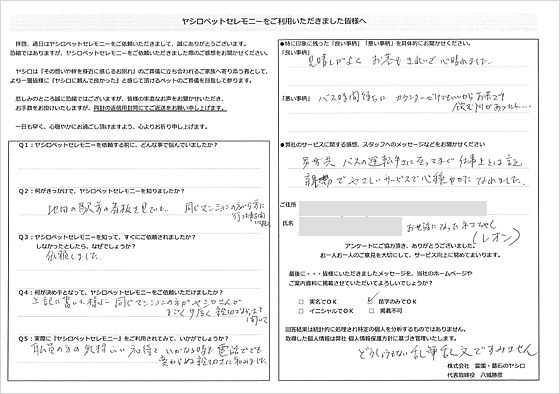 ヤシロペットセレモニーをご利用いただきました皆様へ
拝啓、過日はヤシロペットセレモニーをご依頼いただきまして、誠にありがとうございます。
恐縮ではありますが、ヤシロペットセレモニーをご依頼いただきました際のご感想をお聞かせください。
ヤシロは『その想いや絆を身近に感じるお別れ』のご葬儀に立ち会われるご家族へ寄り添う者として、
より一層皆様に『ヤシロに頼んで良かった』と感じて頂けるペットのご葬儀を目指して参ります。
悲しみのところ誠に恐縮ではございますが、皆様の率直なお声をお聞かせいただき、
お手数をお掛けいたしますが、同封の返信用封筒にてご返送をお願い申し上げます。
一日も早く、心穏やかにお過ごし頂けますよう、心よりお祈り申し上げます。
Q1：ヤシロペットセレモニーを依頼する前に、どんな事で悩んでいましたか？
Q2：何がきっかけで、ヤシロペットセレモニーを知りましたか？
地田の駅前の看板を見て。 同じマンションの方が先に
Q3：ヤシロペットセレモニーを知って、すぐにご依頼されましたか？
しなかったとしたら、なぜでしょうか？
依頼しました。
Q4：何が決め手となって、ヤシロペットセレモニーをご依頼いただけましたか？
上記に書いた様に 同じマンションの方がヤシロさんが
すごく手厚く 親切でよかったと
聞いて
Q5：実際に『ヤシロペットセレモニー』をご利用されてみて、いかがでしょうか？
職員の方の気持いい応待と いかなる時も 電話ででも
変わらぬ親切さに和みました。
●特に印象に残った「良い事柄」「悪い事柄」を具体的にお聞かせください。
「良い事柄」
見晴しがよく お花もきれいで心晴れました。
「悪い事柄」
バス時間待ちに カウンターだけでもいいからお茶でも
飲む所があったら…
●弊社のサービスに関する感想、スタッフへのメッセージなどをお聞かせください。
バスの運転手さんに至ってまで 仕事上とは言
やさしいサービスで心穏やかに なれました。
ご住所
氏名
お世話になった ネコちゃん
(レオン)
アンケートにご協力頂き、ありがとうございました。
お一人お一人のご意見を大切にして、サービス向上に努めてまいります。
最後に・・・皆様にいただきましたメッセージを、当社のホームページや
ご案内資料に掲載させていただいてよろしいでしょうか？
□ 実名でOK ☑ 苗字のみでOK
□ イニシャルでOK □ 掲載不可
回答結果は統計的に処理され特定の個人を分析するものではありません。
取得した個人情報は弊社 個人情報保護方針に基づき管理いたします。
どうしようもない 乱筆乱文ですみません
株式会社 霊園・墓石のヤシロ
代表取締役 八城勝彦